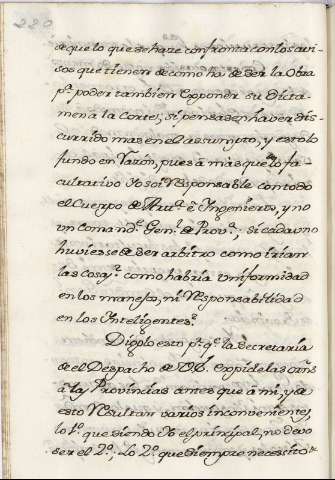 220
de que lo que se hace confronta con los avi-
sos que tienen de como ha de ser la Obra
pª poder tambien exponer su Dicta-
men a la Corte, si pensasen haver dis-
currido mas en el assumpto, y esto lo
fundo en razón, pues a mas que en lo fa-
cultativo Yo soi responsable con todo
el Cuerpo de Artª è Ingenieros, y no
un Comandᵗᵉ Genˡ de Provª; si cada uno
huviesse de ser arbitro como irian
las cosas, y como habria uniformidad
en los manejos, ni responsabilidad
en los Inteligentes.
Digolo esto pʳ qᵉ la Secretaria
de el Despacho de V.E. expide las orñs
à las Provincias antes que à mi, y de
esto resultan varios inconvenientes,
lo 1º que siendo Yo el principal, no devo
ser el 2º; Lo 2º que siempre necessito